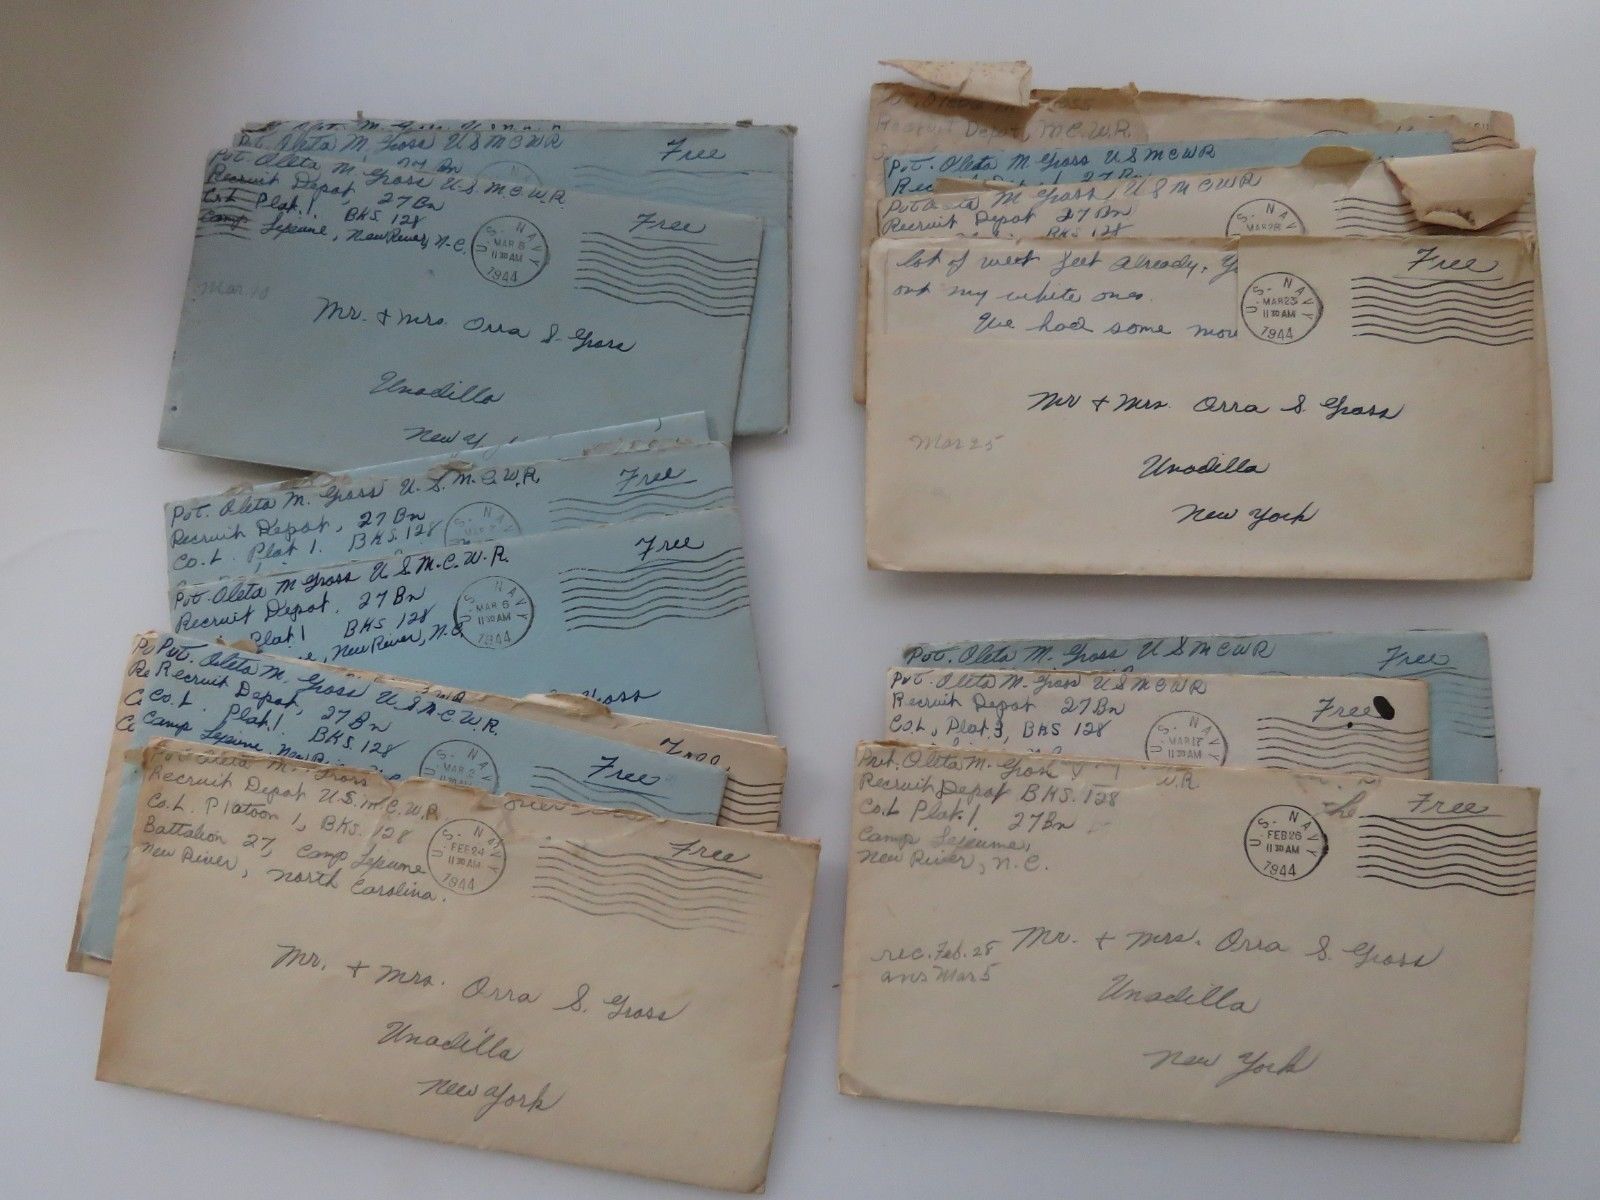 Pvt. Oleta M. Gross USMCWR
Free
Pvt. Oleta M. Gross U.S.M.C.W.R.
Recruit Depot, 27 Bn
Co. L Plat. 1. BKS 128
Camp Lejeune, New River, N.C.
Free
U.S. NAVY
MAR 6
11 30 AM
1944
Mar. 10
Mr. & Mrs Orra S. Gross
Unadilla
New Y
Pvt. Oleta M. Gross U.S.M.C.W.R.
Recruit Depot, 27 Bn
Co. L. Plat 1. BKS. 128
Free
U.S. NAVY
Pvt. Oleta M Gross U.S.M.C.W.R.
Recruit Depot. 27 Bn
Plat. 1 BKS 128
New River, N.C.
Free
U.S. NAVY
MAR 6
11 30 AM
1944
Gross
Pvt. Oleta M. Gross USMCWR.
Recruit Depot, 27 Bn
Co. L. Plat. 1. BKS. 128
Camp Lejeune, New
Free
U.S. NAVY
MAR 2
Free
Pvt Oleta M. Gross
Recruit Depot U.S.M.C.W.R
Co. L. Platoon 1, BKS. 128
Battalion 27, Camp Lejeune
New River, North Carolina.
Free
U.S. NAVY
FEB 24
11 30 AM
1944
Mr. & Mrs. Orra S. Gross
Unadilla
New York
Recruit Depot, M.C.W.R.
Pvt. Oleta M Gross USMCWR
M Gross, USMCWR
Recruit Depot 27 Bn
BKS 128
U.S. NAVY
MAR 28
lot of wet feet already. Y
out my white ones.
We had some mor
Free
U.S. NAVY
MAR 23
11 30 AM
1944
Mr & Mrs. Orra S. Gross
Mar 25
Unadilla
New York
Pvt. Oleta M. Gross USMCWR
Free
Pvt. Oleta M. Gross USMCWR
Recruit Depot 27 Bn
Co. L, Plat. 3, BKS 128
Free
U.S. NAVY
MAR 17
11 30 AM
Pvt. Oleta M. Gross
Recruit Depot BKS. 128
Co. L Plat. 1 27 Bn
Camp Lejeune,
New River, N.C.
Free
U.S. NAVY
FEB 26
11 30 AM
1944
rec. Feb. 28
ans Mar 5
Mr. & Mrs. Orra S. Gross
Unadilla
New York